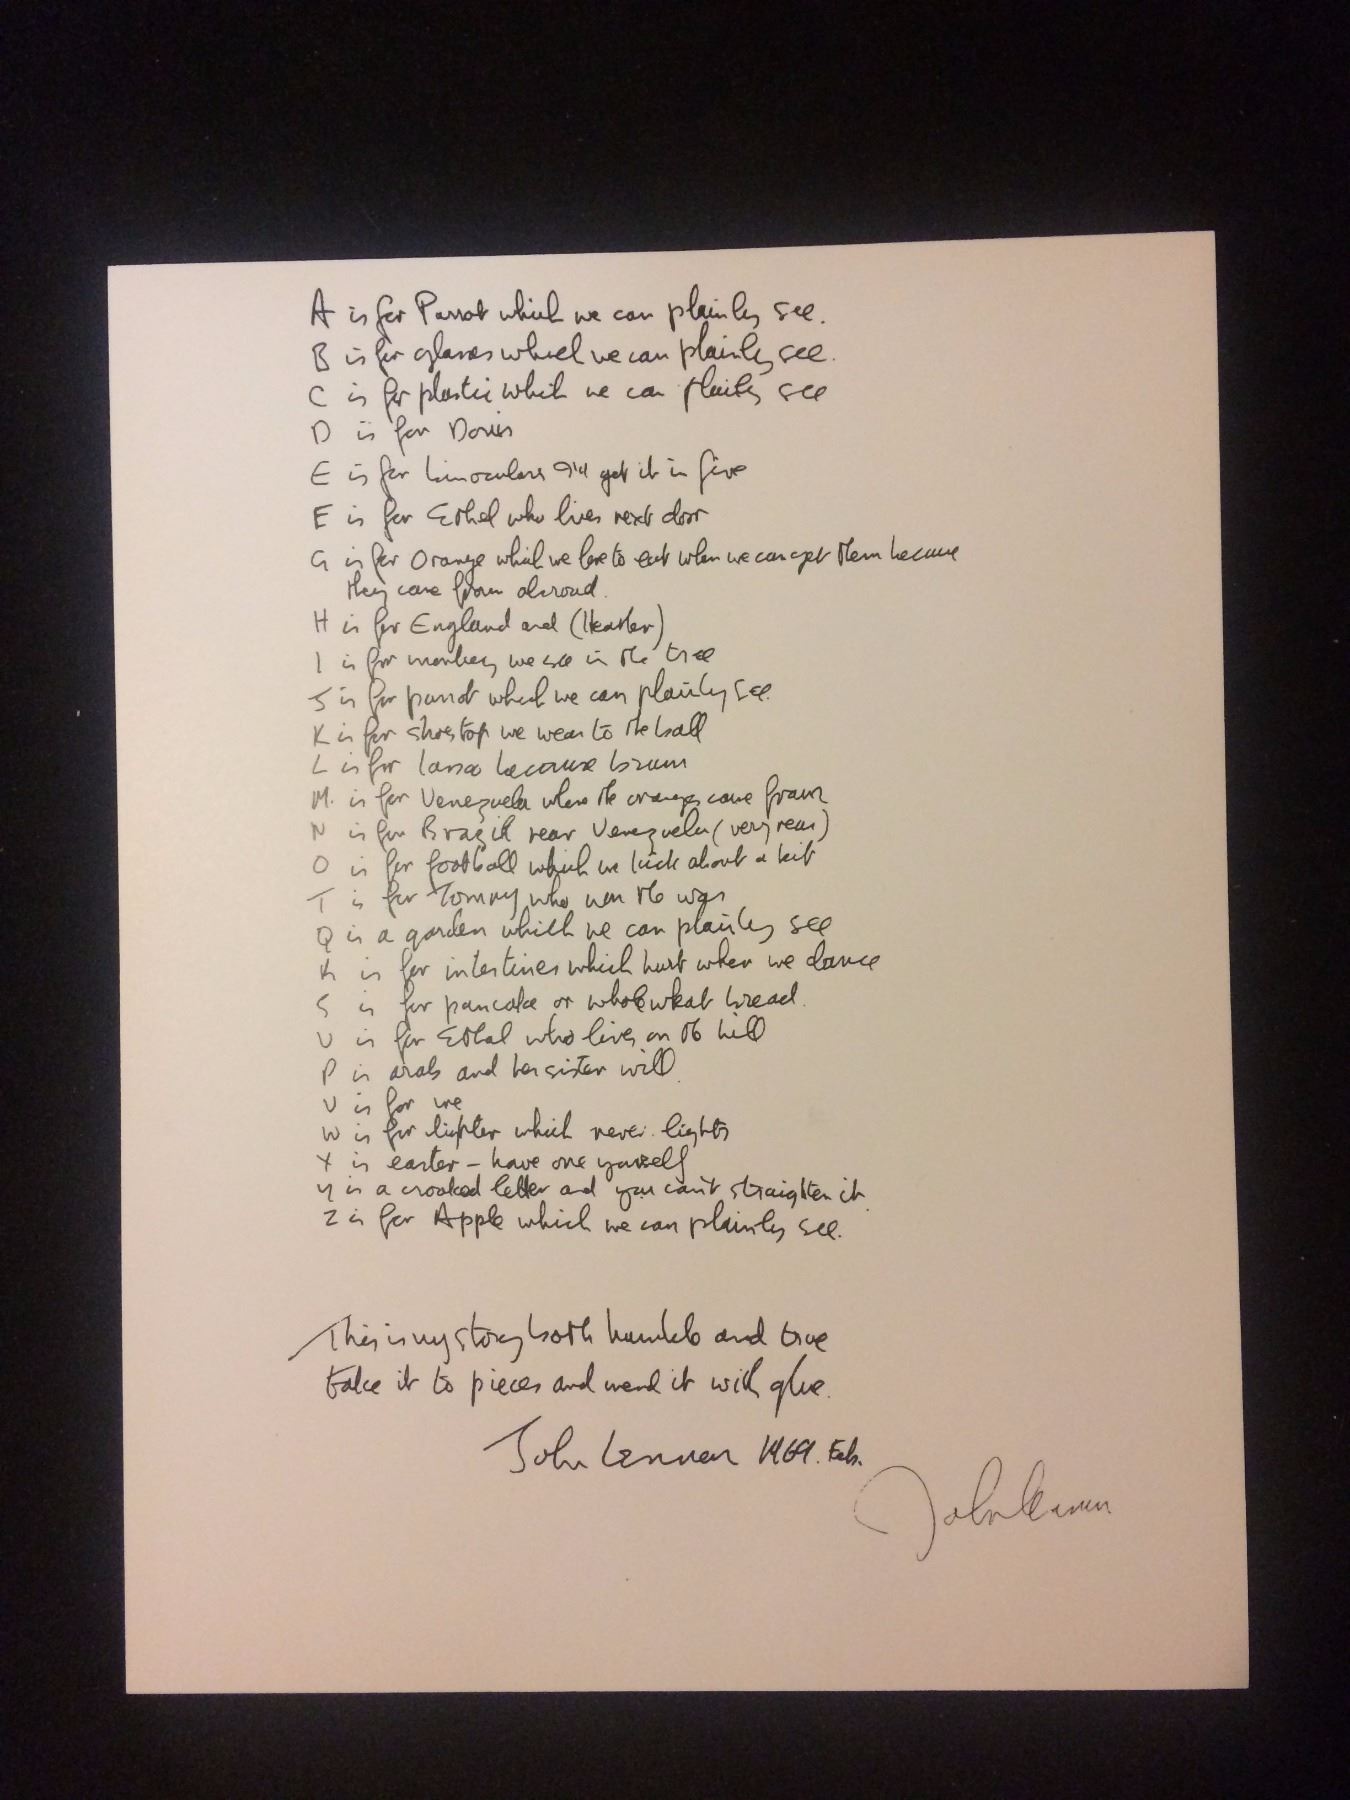 A is for Parrot which we can plainly see.
B is for glasses which we can plainly see.
C is for plastic which we can plainly see
D is for Doris
E is for binoculars I'll get it in five
E is for Ethel who lives next door
G is for Orange which we love to eat when we can get them because
they come from abroad.
H is for England and (Heather)
I is for monkey we see in the tree
J is for parrot which we can plainly see.
K is for shoestop we wear to the ball
L is for lanso because brown
M. is for Venezuela where the oranges come from
N is for Brazil near Venezuela (very near)
O is for football which we kick about a bit
T is for Tommy who won the war
Q is a garden which we can plainly see
R is for intestines which hurt when we dance
S is for pancake or wholewheat bread.
U is for Ethel who lives on the hill
P is arab and her sister will.
V is for me
W is for lighter which never lights
X is easter - have one yourself
Y is a crooked letter and you can't straighten it.
Z is for Apple which we can plainly see.
This is my story both humble and true
take it to pieces and mend it with glue.
John Lennon 1969. Feb.
John Lennon